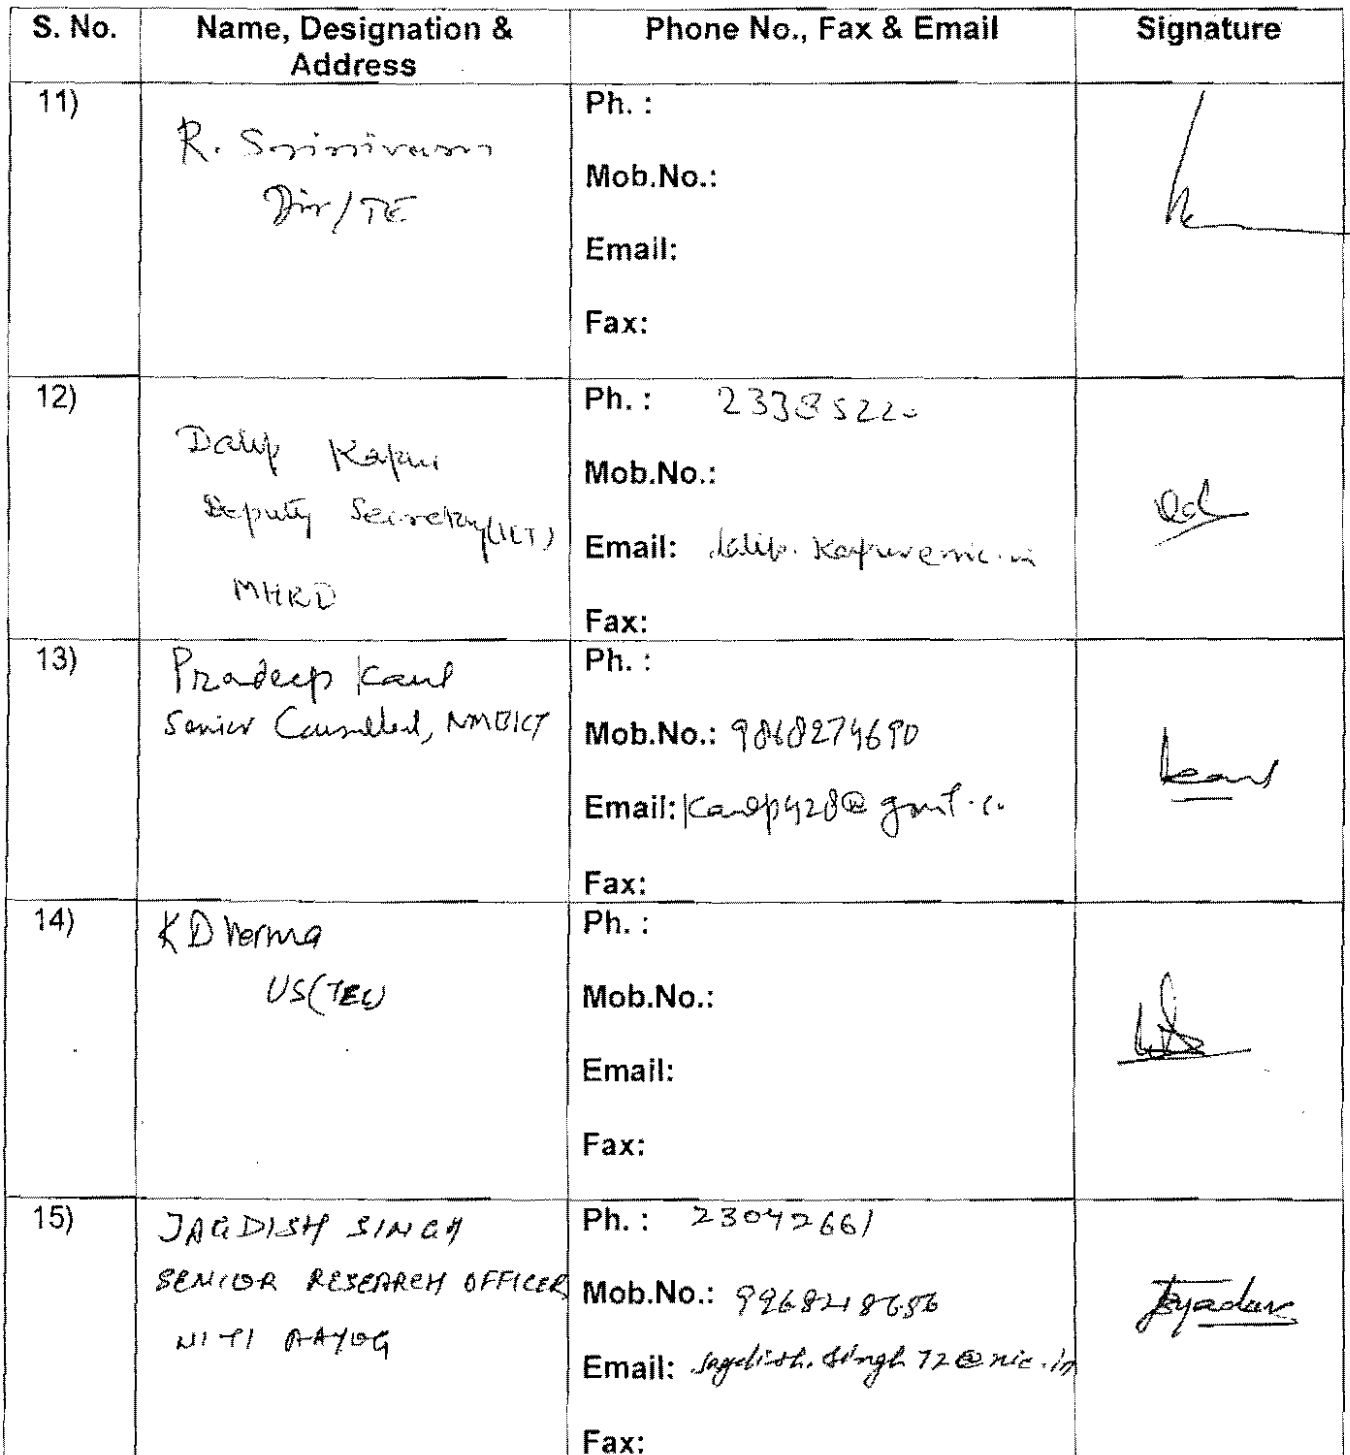 S. No. Name, Designation & Address Phone No., Fax & Email Signature
11)
R. Srinivasan
Dir/TE
Ph. :
Mob.No.:
Email:
Fax:
12)
Dalip Kapur
Deputy Secretary(ICT)
MHRD
Ph. : 23385220
Mob.No.:
Email: dalip.kapur@nic.in
Fax:
13)
Pradeep Kaul
Senior Consultant, NMEICT
Ph. :
Mob.No.: 9868274690
Email: kaulp428@
Fax:
Kaul
14)
K D Verma
US(TEL)
Ph. :
Mob.No.:
Email:
Fax:
15)
JAGDISH SINGH
SENIOR RESEARCH OFFICER
NITI AAYOG
Ph. : 23042661
Mob.No.:
Email: jagdish.singh72@nic.in
Fax: